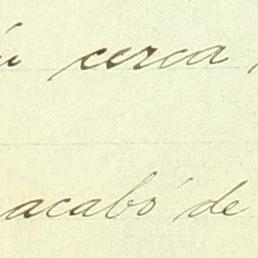 cerca,
acabó de